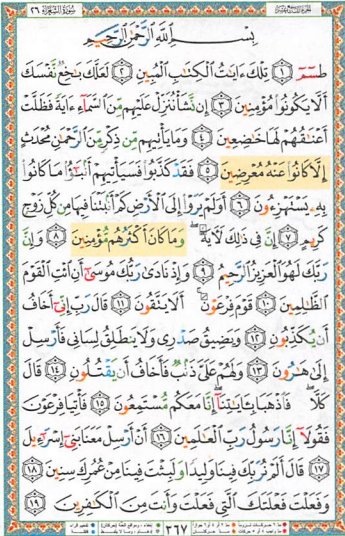 سورة الشعراء ٢٦
بِسْمِ اللَّهِ الرَّحْمَٰنِ الرَّحِيمِ
طسٓمٓ ١ تِلْكَ ءَايَٰتُ الْكِتَٰبِ الْمُبِينِ ٢ لَعَلَّكَ بَٰخِعٌ نَّفْسَكَ
أَلَّا يَكُونُوا۟ مُؤْمِنِينَ ٣ إِن نَّشَأْ نُنَزِّلْ عَلَيْهِم مِّنَ السَّمَآءِ ءَايَةً فَظَلَّتْ
أَعْنَٰقُهُمْ لَهَا خَٰضِعِينَ ٤ وَمَا يَأْتِيهِم مِّن ذِكْرٍ مِّنَ الرَّحْمَٰنِ مُحْدَثٍ
إِلَّا كَانُوا۟ عَنْهُ مُعْرِضِينَ ٥ فَقَدْ كَذَّبُوا۟ فَسَيَأْتِيهِمْ أَنۢبَٰٓؤُا۟ مَا كَانُوا۟
بِهِۦ يَسْتَهْزِءُونَ ٦ أَوَلَمْ يَرَوْا۟ إِلَى الْأَرْضِ كَمْ أَنۢبَتْنَا فِيهَا مِن كُلِّ زَوْجٍ
كَرِيمٍ ٧ إِنَّ فِى ذَٰلِكَ لَءَايَةً وَمَا كَانَ أَكْثَرُهُم مُّؤْمِنِينَ ٨ وَإِنَّ
رَبَّكَ لَهُوَ الْعَزِيزُ الرَّحِيمُ ٩ وَإِذْ نَادَىٰ رَبُّكَ مُوسَىٰٓ أَنِ ائْتِ الْقَوْمَ
الظَّٰلِمِينَ ١٠ قَوْمَ فِرْعَوْنَ أَلَا يَتَّقُونَ ١١ قَالَ رَبِّ إِنِّىٓ أَخَافُ
أَن يُكَذِّبُونِ ١٢ وَيَضِيقُ صَدْرِى وَلَا يَنطَلِقُ لِسَانِى فَأَرْسِلْ
إِلَىٰ هَٰرُونَ ١٣ وَلَهُمْ عَلَىَّ ذَنۢبٌ فَأَخَافُ أَن يَقْتُلُونِ ١٤ قَالَ
كَلَّا فَاذْهَبَا بِـَٔايَٰتِنَآ إِنَّا مَعَكُم مُّسْتَمِعُونَ ١٥ فَأْتِيَا فِرْعَوْنَ
فَقُولَآ إِنَّا رَسُولُ رَبِّ الْعَٰلَمِينَ ١٦ أَنْ أَرْسِلْ مَعَنَا بَنِىٓ إِسْرَٰٓءِيلَ
١٧ قَالَ أَلَمْ نُرَبِّكَ فِينَا وَلِيدًا وَلَبِثْتَ فِينَا مِنْ عُمُرِكَ سِنِينَ ١٨
وَفَعَلْتَ فَعْلَتَكَ الَّتِى فَعَلْتَ وَأَنتَ مِنَ الْكَٰفِرِينَ ١٩
٣٦٧